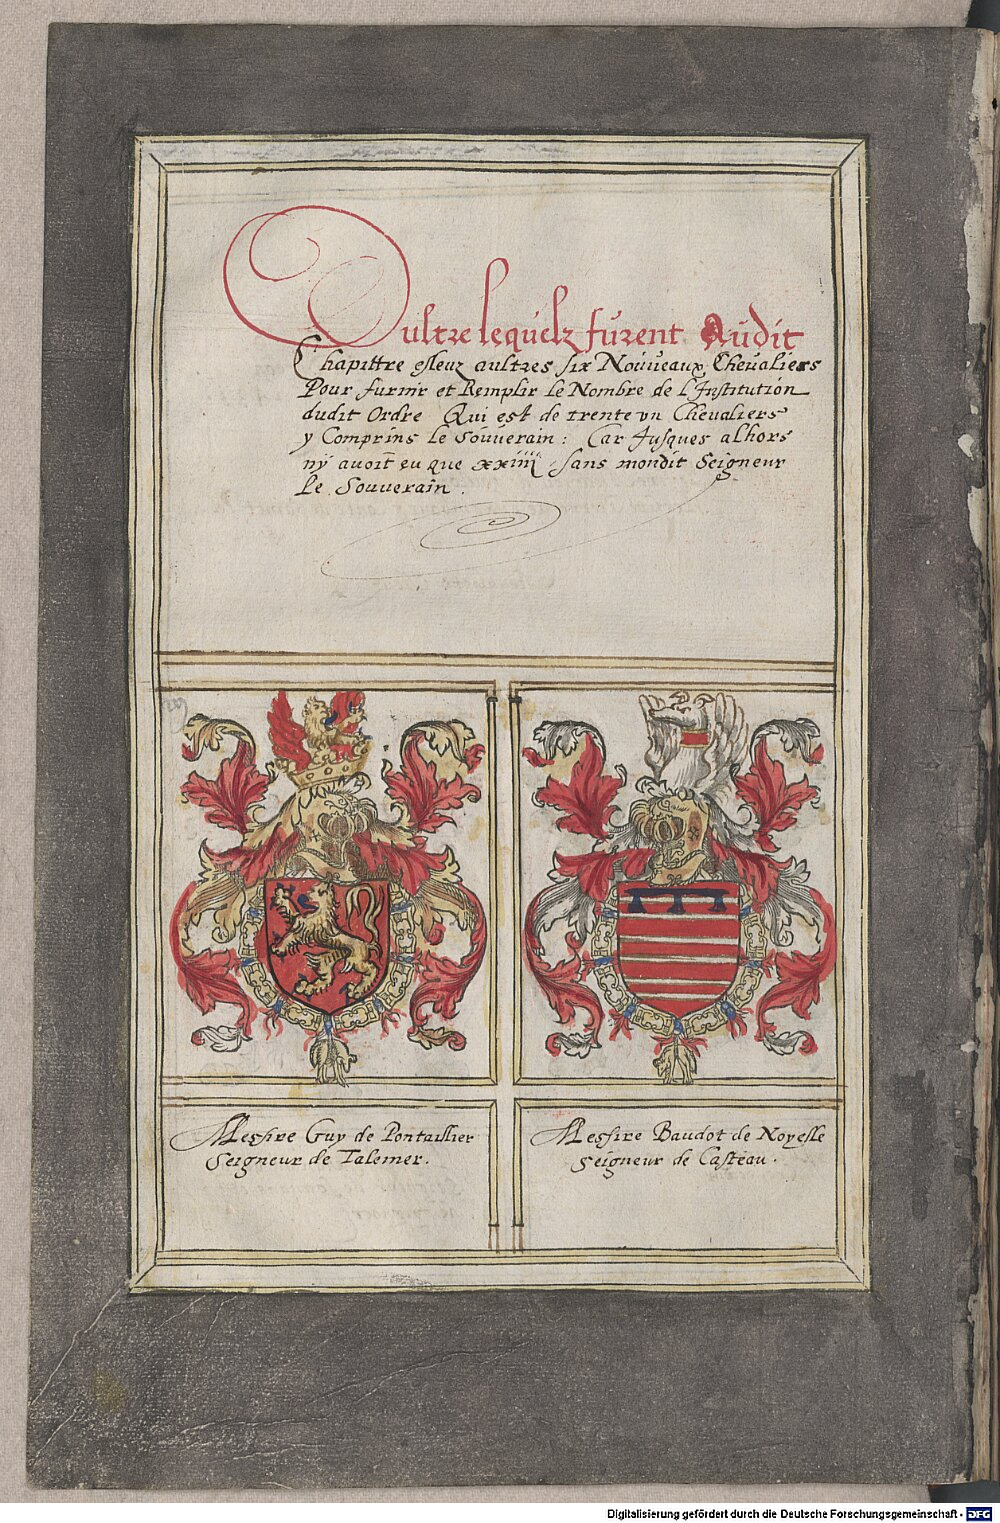 Oultre lequelz furent Audit
Chapittre esleuz aultres six Nouueaux Cheualiers
Pour furnir et Remplir le Nombre de l'Institution
dudit Ordre Qui est de trente vn Cheualiers
y Comprins le Souuerain : Car Jusques alhors
ny auoit eu que xxiiij sans mondit Seigneur
le Souuerain .
Messire Guy de Pontaillier
Seigneur de Talemer .
Messire Baudot de Noyelle
Seigneur de Casteau .
Digitalisierung gefördert durch die Deutsche Forschungsgemeinschaft - DFG